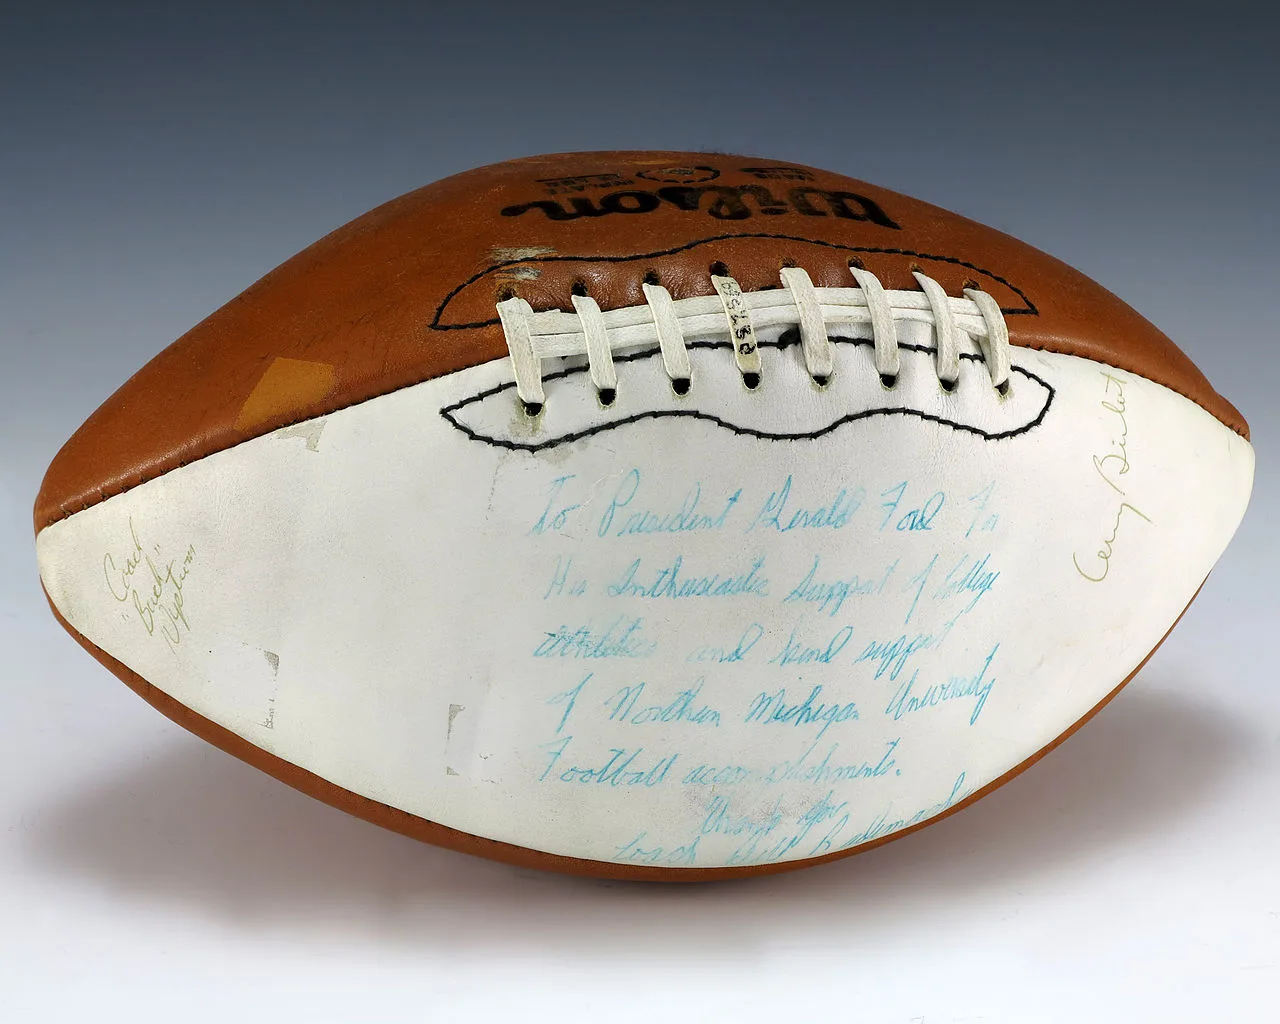 Wilson
To President Gerald Ford For
His Enthusiastic Support of College
athletics and kind support
of Northern Michigan University
Football accomplishments.
Thank you
Coach Bill
Coach
"Buck"
Nystrom